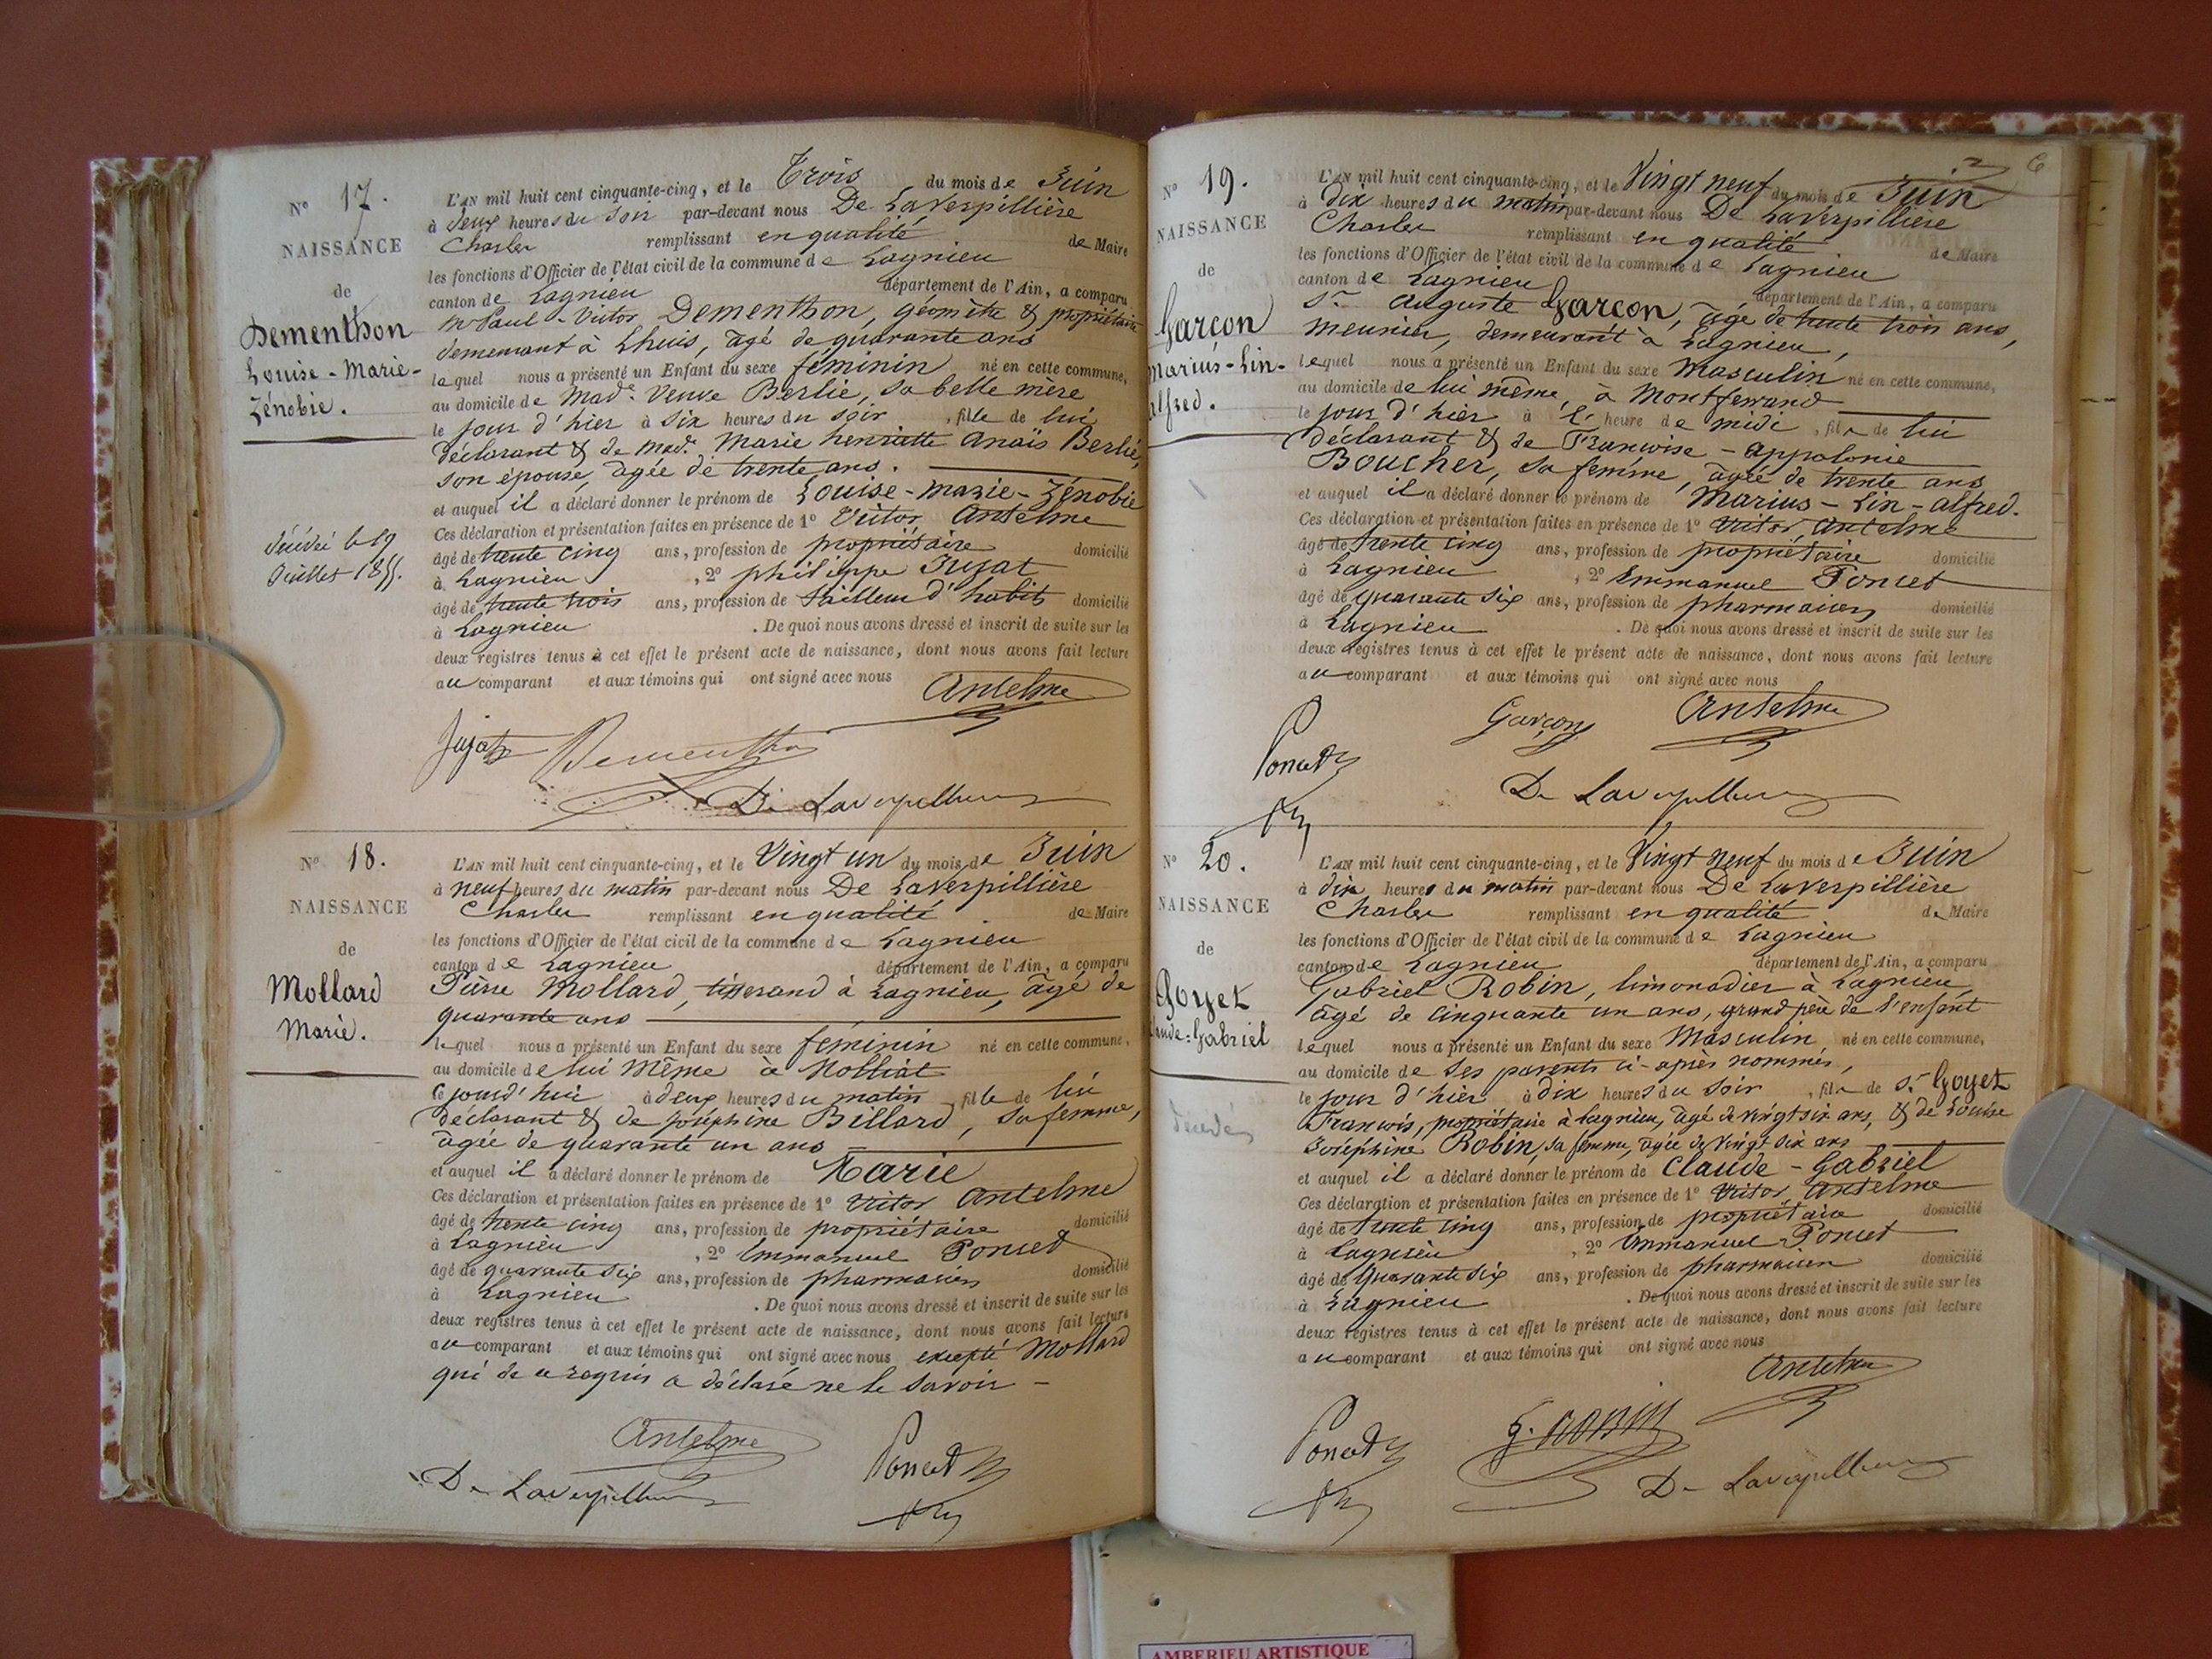 N° 17.
NAISSANCE
de
Dementhon
Louise - Marie -
Zénobie.
L'AN mil huit cent cinquante-cinq, et le Trois du mois de Juin
à deux heures du soir par-devant nous De Laverpillière
Charles remplissant en qualité de Maire
les fonctions d'Officier de l'état civil de la commune de Lagnieu
canton de Lagnieu département de l'Ain, a comparu
Mr Paul - Victor Dementhon, géomètre & propriétaire
demeurant à Lhuis, âgé de quarante ans
lequel nous a présenté un Enfant du sexe féminin né en cette commune,
au domicile de Made Veuve Berlié, sa belle mère
le jour d'hier à six heures du soir, fille de lui
déclarant & de Made Marie henriette Anaïs Berlié,
son épouse, âgée de trente ans.
et auquel il a déclaré donner le prénom de Louise - Marie - Zénobie
Ces déclaration et présentation faites en présence de 1° Victor Antelme
âgé de trente cinq ans, profession de propriétaire domicilié
à Lagnieu, 2° philippe Jujat
âgé de trente trois ans, profession de tailleur d'habits domicilié
à Lagnieu. De quoi nous avons dressé et inscrit de suite sur les
deux registres tenus à cet effet le présent acte de naissance, dont nous avons fait lecture
au comparant et aux témoins qui ont signé avec nous
décédée le 19
Juillet 1855.
Antelme
Jujat Dementhon
De Laverpilliere
N° 18.
NAISSANCE
de
Mollard
Marie.
L'AN mil huit cent cinquante-cinq, et le Vingt un du mois de Juin
à neuf heures du matin par-devant nous De Laverpillière
Charles remplissant en qualité de Maire
les fonctions d'Officier de l'état civil de la commune de Lagnieu
canton de Lagnieu département de l'Ain, a comparu
Pierre Mollard, tisserand à Lagnieu, âgé de
quarante ans
lequel nous a présenté un Enfant du sexe féminin né en cette commune,
au domicile de lui même à
ce jourd'hui à deux heures du matin, fille de lui
déclarant & de Joséphine Billard, sa femme,
âgée de quarante un ans
et auquel il a déclaré donner le prénom de Marie
Ces déclaration et présentation faites en présence de 1° Victor Antelme
âgé de trente cinq ans, profession de propriétaire domicilié
à Lagnieu, 2° Emmanuel Poncet
âgé de quarante six ans, profession de pharmacien domicilié
à Lagnieu. De quoi nous avons dressé et inscrit de suite sur les
deux registres tenus à cet effet le présent acte de naissance, dont nous avons fait lecture
au comparant et aux témoins qui ont signé avec nous excepté Mollard
qui de ce requis a déclaré ne le savoir -
Antelme Poncet
De Laverpilliere
6
N° 19.
NAISSANCE
de
Garçon
Marius - Lin -
alfred.
L'AN mil huit cent cinquante-cinq, et le Vingt neuf du mois de Juin
à dix heures du matin par-devant nous De Laverpillière
Charles remplissant en qualité de Maire
les fonctions d'Officier de l'état civil de la commune de Lagnieu
canton de Lagnieu département de l'Ain, a comparu
Sr Auguste Garçon, âgé de trente trois ans,
meunier, demeurant à Lagnieu,
lequel nous a présenté un Enfant du sexe Masculin né en cette commune,
au domicile de lui même, à Montferrand
le jour d'hier à l' heure de midi, fils de lui
déclarant & de Françoise - Appolonie
Boucher, sa femme, âgée de trente ans
et auquel il a déclaré donner le prénom de Marius - Lin - alfred.
Ces déclaration et présentation faites en présence de 1° Victor Antelme
âgé de trente cinq ans, profession de propriétaire domicilié
à Lagnieu, 2° Emmanuel Poncet
âgé de quarante six ans, profession de pharmacien domicilié
à Lagnieu. De quoi nous avons dressé et inscrit de suite sur les
deux registres tenus à cet effet le présent acte de naissance, dont nous avons fait lecture
au comparant et aux témoins qui ont signé avec nous
Garçon Antelme
Poncet
De Laverpilliere
N° 20.
NAISSANCE
de
Goyet
Claude - Gabriel
décédé
L'AN mil huit cent cinquante-cinq, et le Vingt neuf du mois de Juin
à dix heures du matin par-devant nous De Laverpillière
Charles remplissant en qualité de Maire
les fonctions d'Officier de l'état civil de la commune de Lagnieu
canton de Lagnieu département de l'Ain, a comparu
Gabriel Robin, limonadier à Lagnieu,
âgé de cinquante un ans, grand père de l'enfant
lequel nous a présenté un Enfant du sexe Masculin né en cette commune,
au domicile de ses parents ci-après nommés,
le jour d'hier à dix heures du soir, fils de Sr Goyet
François, propriétaire à Lagnieu, âgé de vingt six ans, & de Louise
Joséphine Robin, sa femme, âgée de vingt six ans
et auquel il a déclaré donner le prénom de Claude - Gabriel
Ces déclaration et présentation faites en présence de 1° Victor Antelme
âgé de trente cinq ans, profession de propriétaire domicilié
à Lagnieu, 2° Emmanuel Poncet
âgé de quarante six ans, profession de pharmacien domicilié
à Lagnieu. De quoi nous avons dressé et inscrit de suite sur les
deux registres tenus à cet effet le présent acte de naissance, dont nous avons fait lecture
au comparant et aux témoins qui ont signé avec nous
Antelme
Poncet G. ROBIN
De Laverpilliere
AMBERIEU ARTISTIQUE